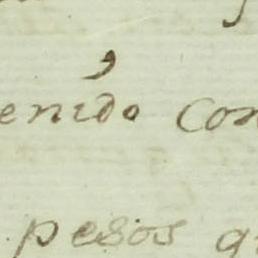 enido con
pesos q